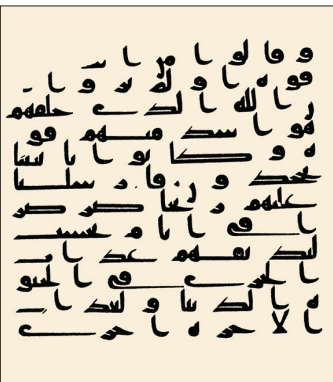 وقالوا من اشد
قوه اولم يروا ا
ن الله الذى خلقهم
هو اشد منهم قو
ه وكانوا باييتنا
يجحدون فارسلنا
عليهم ريحا صرصر
ا فى ايام نحست
لنذيقهم عذاب
الخزى فى الحيو
ه الدنيا ولعذاب
الاخره اخزى